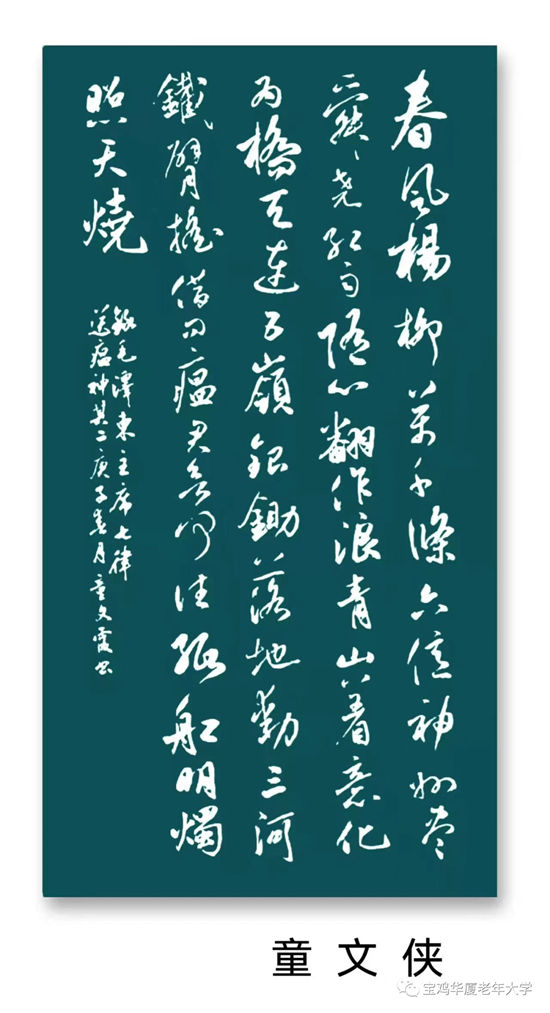 春风楊柳万千條六億神州尽
舜尧红雨随心翻作浪青山着意化
为橋天連五嶺銀鋤落地動三河
鐵臂搖借问瘟君欲何往纸船明燭
照天燒
錄毛澤東主席七律
送瘟神其二庚子春月童文霞书
童文侠
宝鸡华厦老年大学